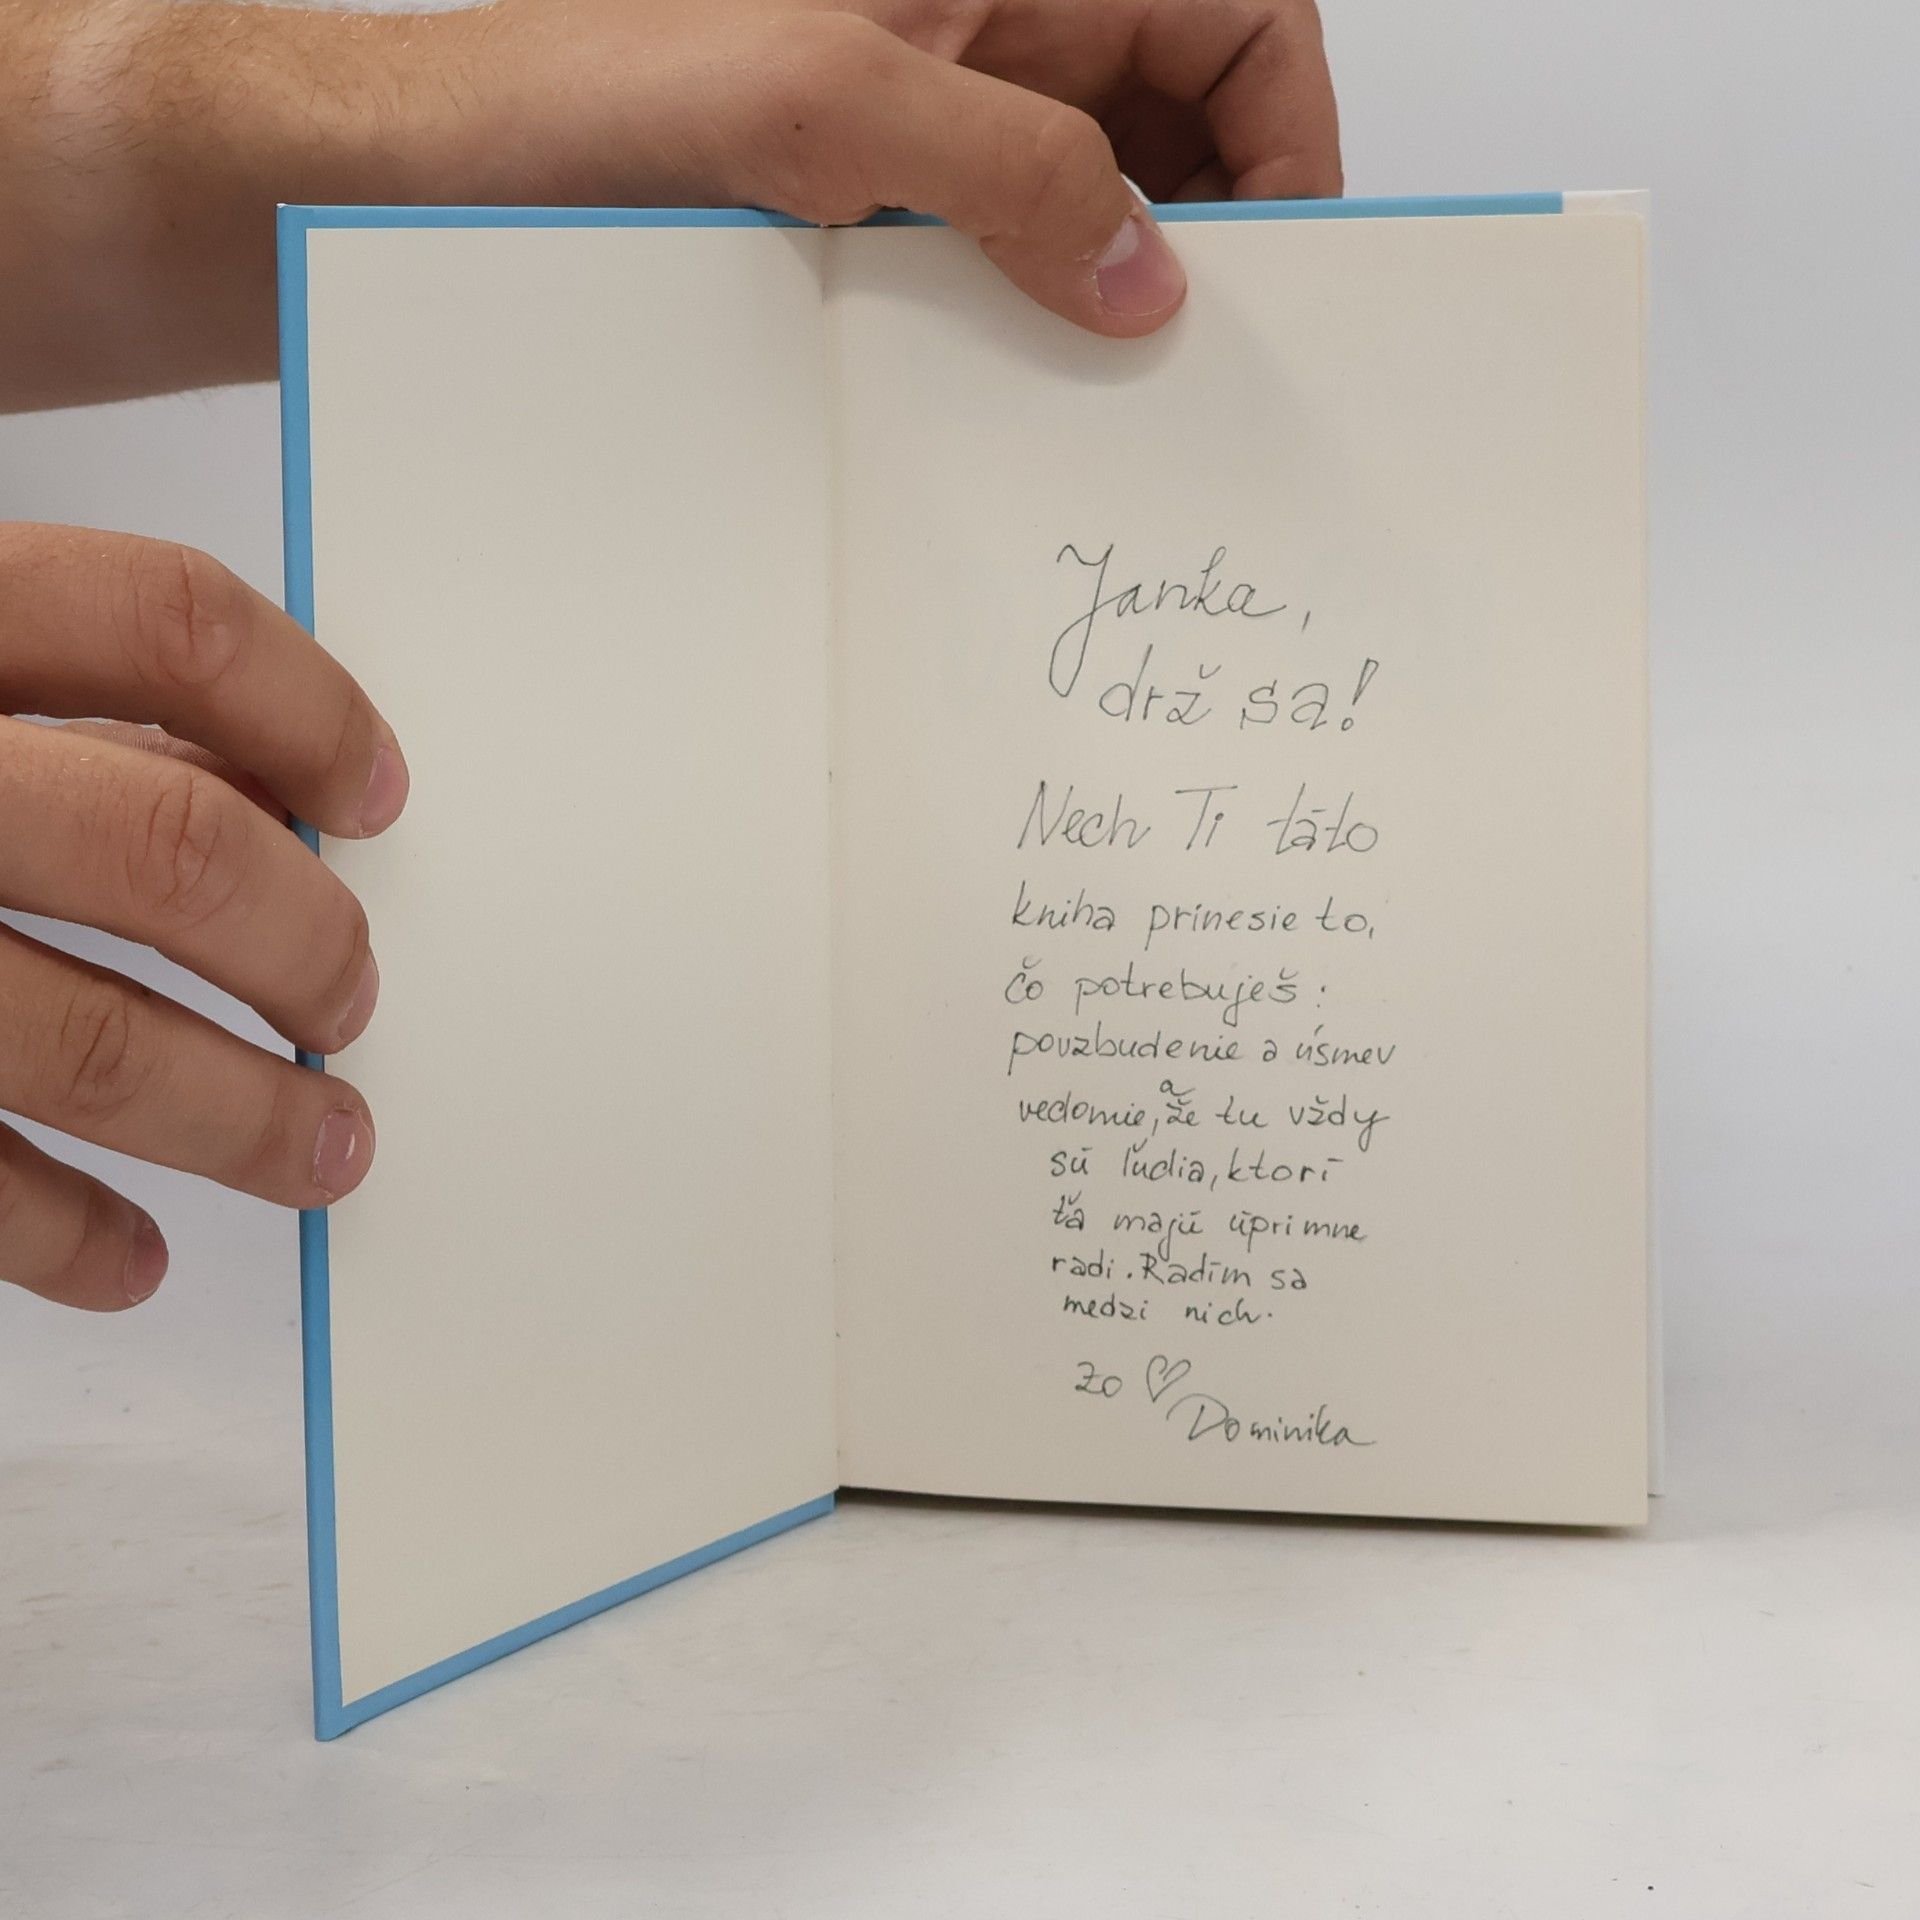 Janka,
drž sa!
Nech Ti táto
kniha prinesie to,
čo potrebuješ:
povzbudenie a úsmev
a
vedomie, že tu vždy
sú ľudia, ktorí
ťa majú úprimne
radi. Radím sa
medzi nich.
zo ♡
Dominika